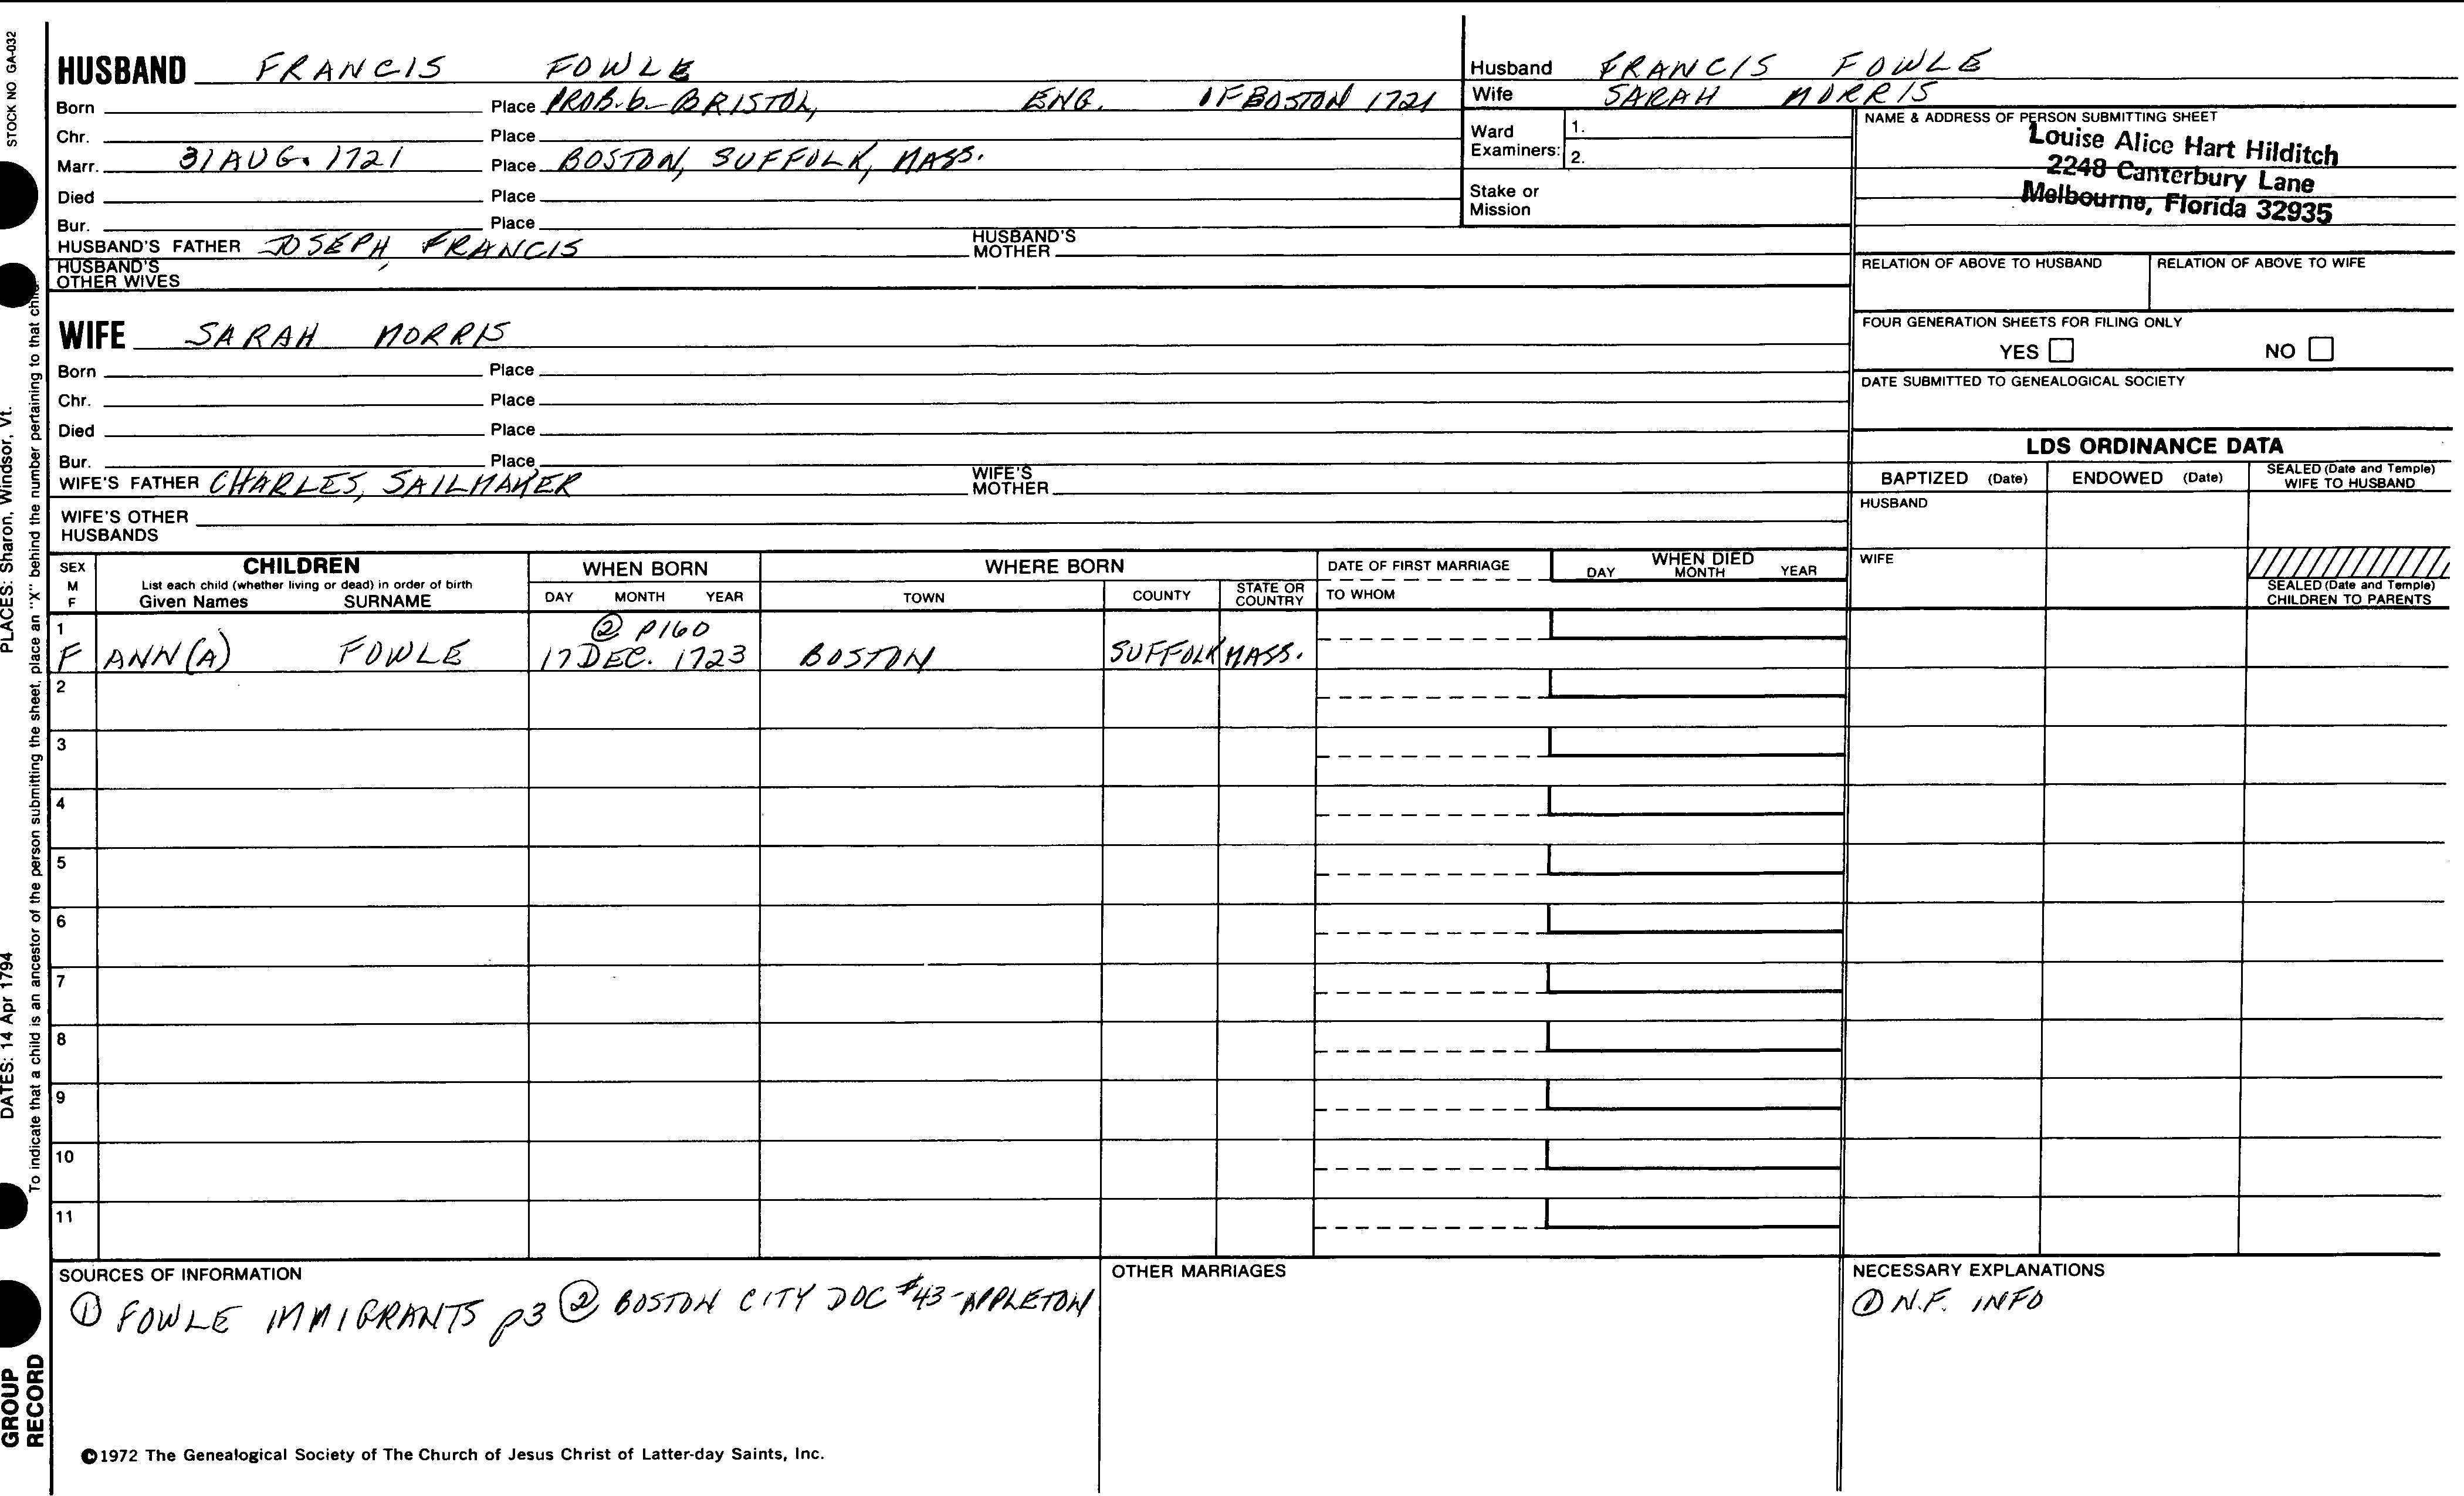 STOCK NO GA-032
HUSBAND FRANCIS FOWLE
Born Place PROB. b- BRISTOL, ENG. OF BOSTON 1721
Chr. Place
Marr. 31 AUG. 1721 Place BOSTON, SUFFOLK, MASS.
Died Place
Bur. Place
HUSBAND'S FATHER JOSEPH, FRANCIS HUSBAND'S MOTHER
HUSBAND'S OTHER WIVES
Husband FRANCIS FOWLE
Wife SARAH MORRIS
Ward Examiners: 1.
2.
Stake or Mission
NAME & ADDRESS OF PERSON SUBMITTING SHEET
Louise Alice Hart Hilditch
2248 Canterbury Lane
Melbourne, Florida 32935
RELATION OF ABOVE TO HUSBAND RELATION OF ABOVE TO WIFE
FOUR GENERATION SHEETS FOR FILING ONLY
YES NO
DATE SUBMITTED TO GENEALOGICAL SOCIETY
WIFE SARAH MORRIS
Born Place
Chr. Place
Died Place
Bur. Place
WIFE'S FATHER CHARLES, SAILMAKER WIFE'S MOTHER
WIFE'S OTHER HUSBANDS
LDS ORDINANCE DATA
BAPTIZED (Date) ENDOWED (Date) SEALED (Date and Temple) WIFE TO HUSBAND
HUSBAND
WIFE
SEALED (Date and Temple) CHILDREN TO PARENTS
SEX M F
CHILDREN
List each child (whether living or dead) in order of birth
Given Names SURNAME
WHEN BORN
DAY MONTH YEAR
WHERE BORN
TOWN COUNTY STATE OR COUNTRY
DATE OF FIRST MARRIAGE
TO WHOM
WHEN DIED
DAY MONTH YEAR
1 ② P160
F ANN(A) FOWLE 17 DEC. 1723 BOSTON SUFFOLK MASS.
2
3
4
5
6
7
8
9
10
11
SOURCES OF INFORMATION
① FOWLE IMMIGRANTS p3 ② BOSTON CITY DOC #43-APPLETON
OTHER MARRIAGES
NECESSARY EXPLANATIONS
① N.F. INFO
©1972 The Genealogical Society of The Church of Jesus Christ of Latter-day Saints, Inc.
GROUP RECORD
DATES: 14 Apr 1794 PLACES: Sharon, Windsor, Vt.
To indicate that a child is an ancestor of the person submitting the sheet, place an "X" behind the number pertaining to that child.